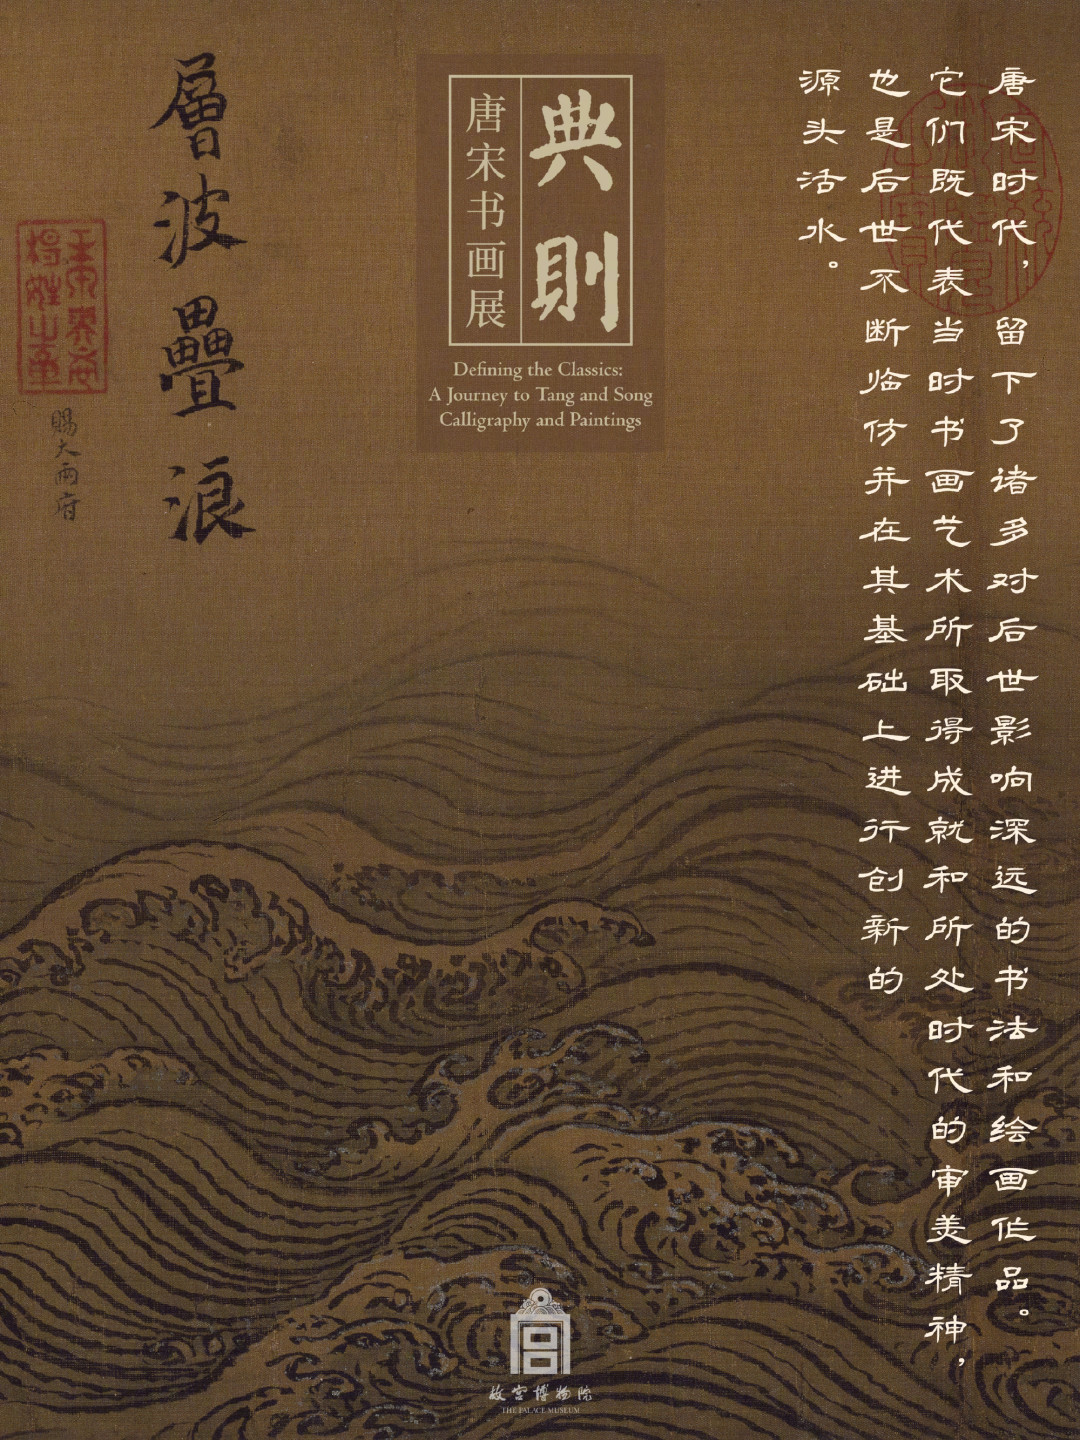 唐宋时代，留下了诸多对后世影响深远的书法和绘画作品。
它们既代表当时书画艺术所取得成就和所处时代的审美精神，
也是后世不断临仿并在其基础上进行创新的
源头活水。
典則
唐宋书画展
Defining the Classics:
A Journey to Tang and Song
Calligraphy and Paintings
層波疊浪
壬申貴妾
楊姓之章
賜大兩府
故宫博物院
THE PALACE MUSEUM